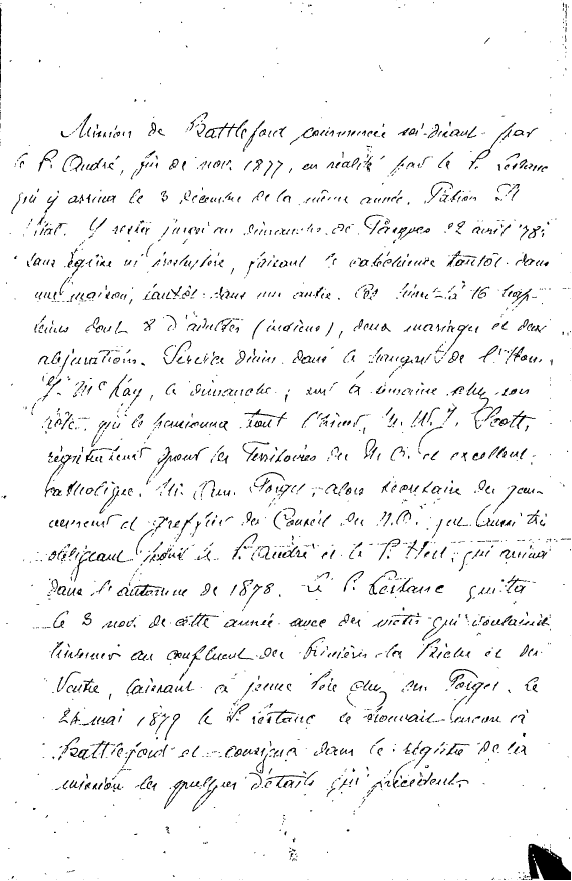 Mission de Battleford commencée soi-disant par
le P. André, fin de nov. 1877, en réalité par le P. Lestanc
qui y arriva le 3 décembre de la même année. Patron St
Vital. Y resta jusqu'au dimanche de Pâques 22 avril '78,
sans église ni presbytère, faisant le catéchisme tantôt dans
une maison, tantôt dans une autre. Cet hiver-là 16 bap-
têmes dont 8 d'adultes (indiens), deux mariages et deux
abjurations. Service divin dans le hangar de l'Hon.
J. McKay, le dimanche; sur la semaine chez son
hôte qui le pensionna tout l'hiver, M. W. J. Scott,
régistrateur pour les Territoires du N.O. et excellent
catholique. M. Am. Forget, alors secrétaire du gou-
vernement et greffier du Conseil du N.O. fut aussi très
obligeant pour le P. André et le P. Hert, qui arriva
dans l'automne de 1878. Le P. Lestanc quitta
le 3 nov. de cette année avec des métis qui voulaient
hiverner au confluent des rivières La Biche et du
Ventre, laissant le jeune Père chez M. Forget. Le
24 mai 1879 le P. Lestanc se trouvait encore à
Battleford et consigna dans le régistre de la
mission les quelques détails qui précèdent.